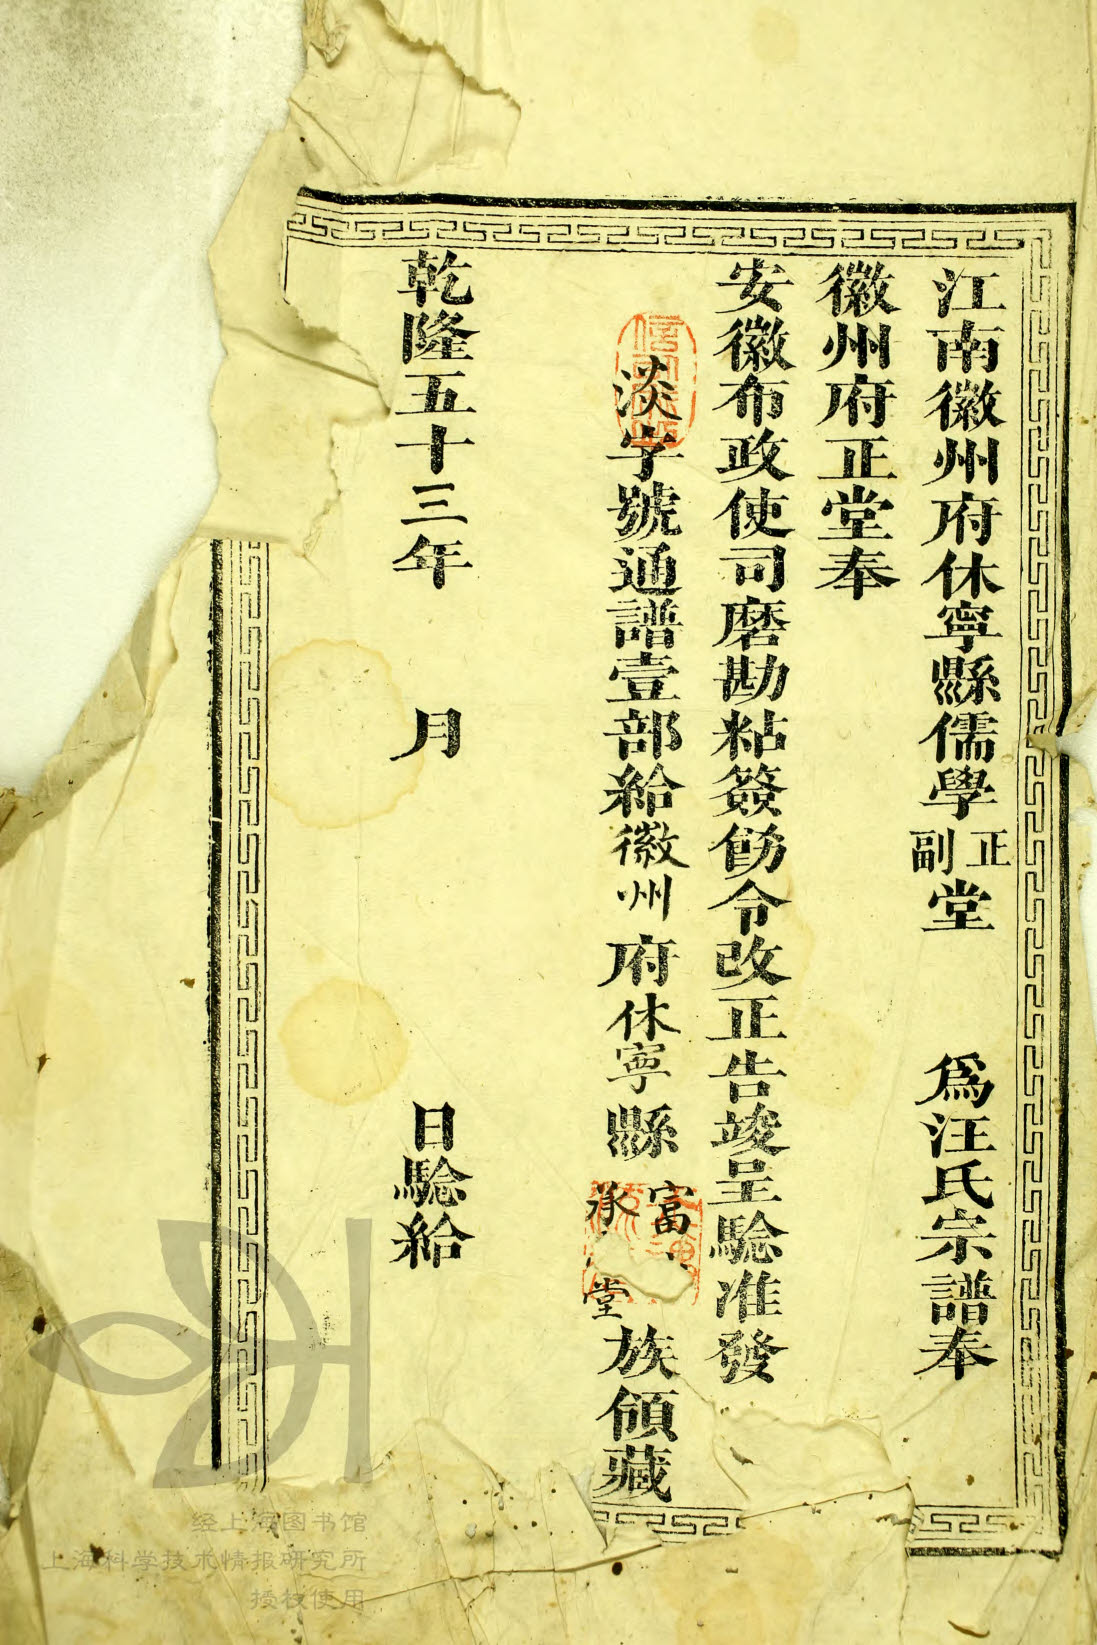 江南徽州府休寧縣儒學正副堂 爲汪氏宗譜奉
徽州府正堂奉
安徽布政使司磨勘粘簽飭令改正告竣呈驗准發
淡字號通譜壹部給徽州府休寧縣富承堂族領藏
乾隆五十三年 月 日驗給
经上海图书馆
上海科学技术情报研究所
授权使用